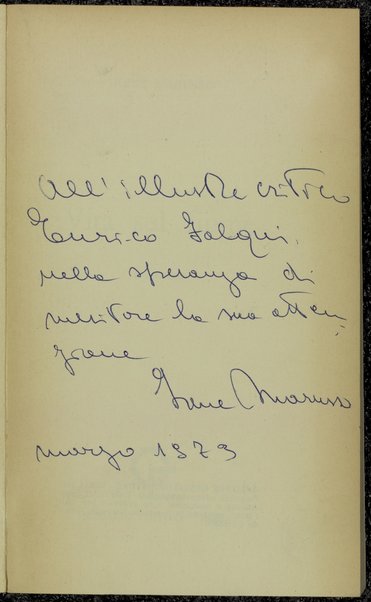 All'illustre critico
Enrico Falqui,
nella speranza di
meritare la sua atten-
zione
Irene Marusso
marzo 1973